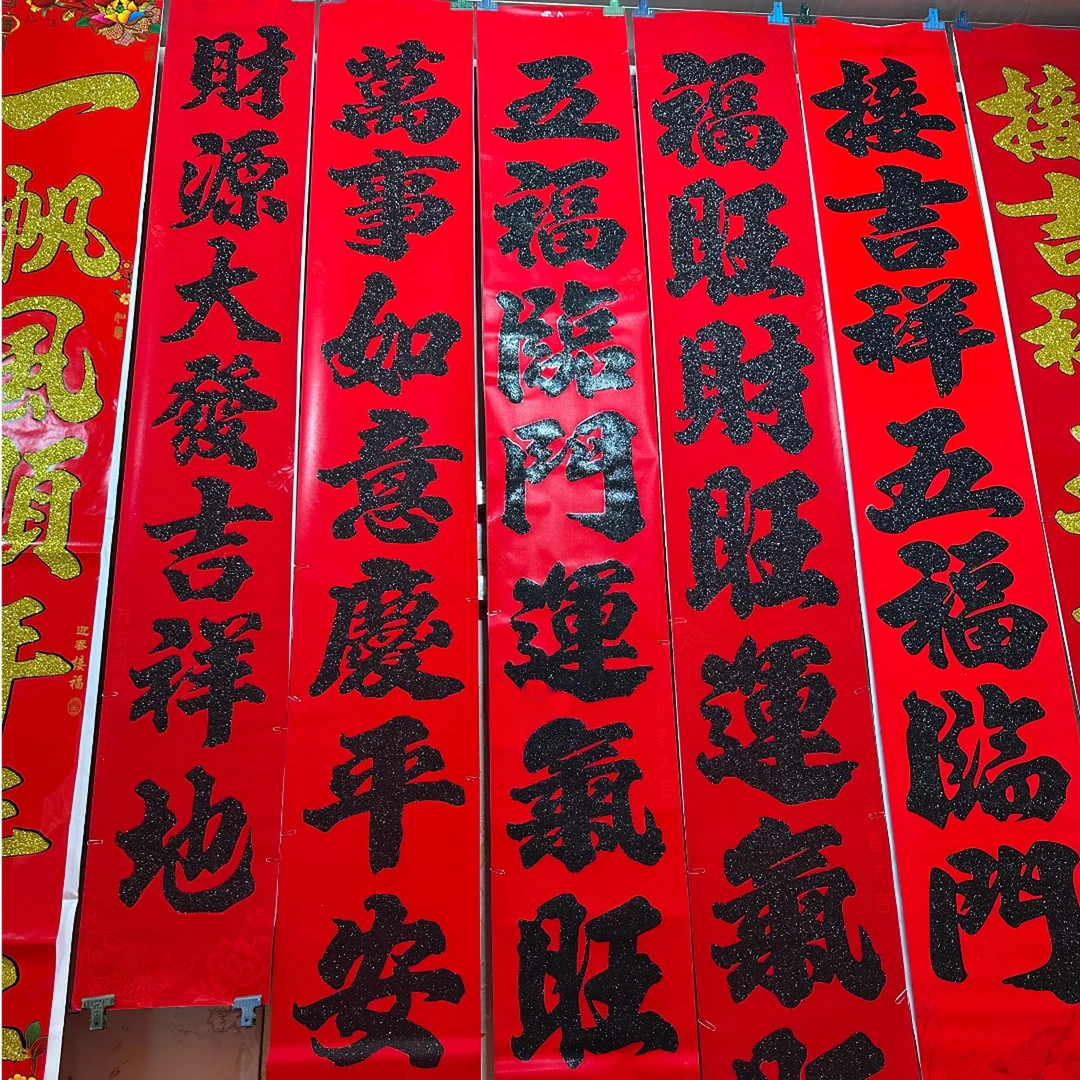 一帆風順年
迎春接福
財源大發吉祥地
萬事如意慶平安
五福臨門運氣旺
福旺財旺運氣旺
接吉祥五福臨門
接吉祥